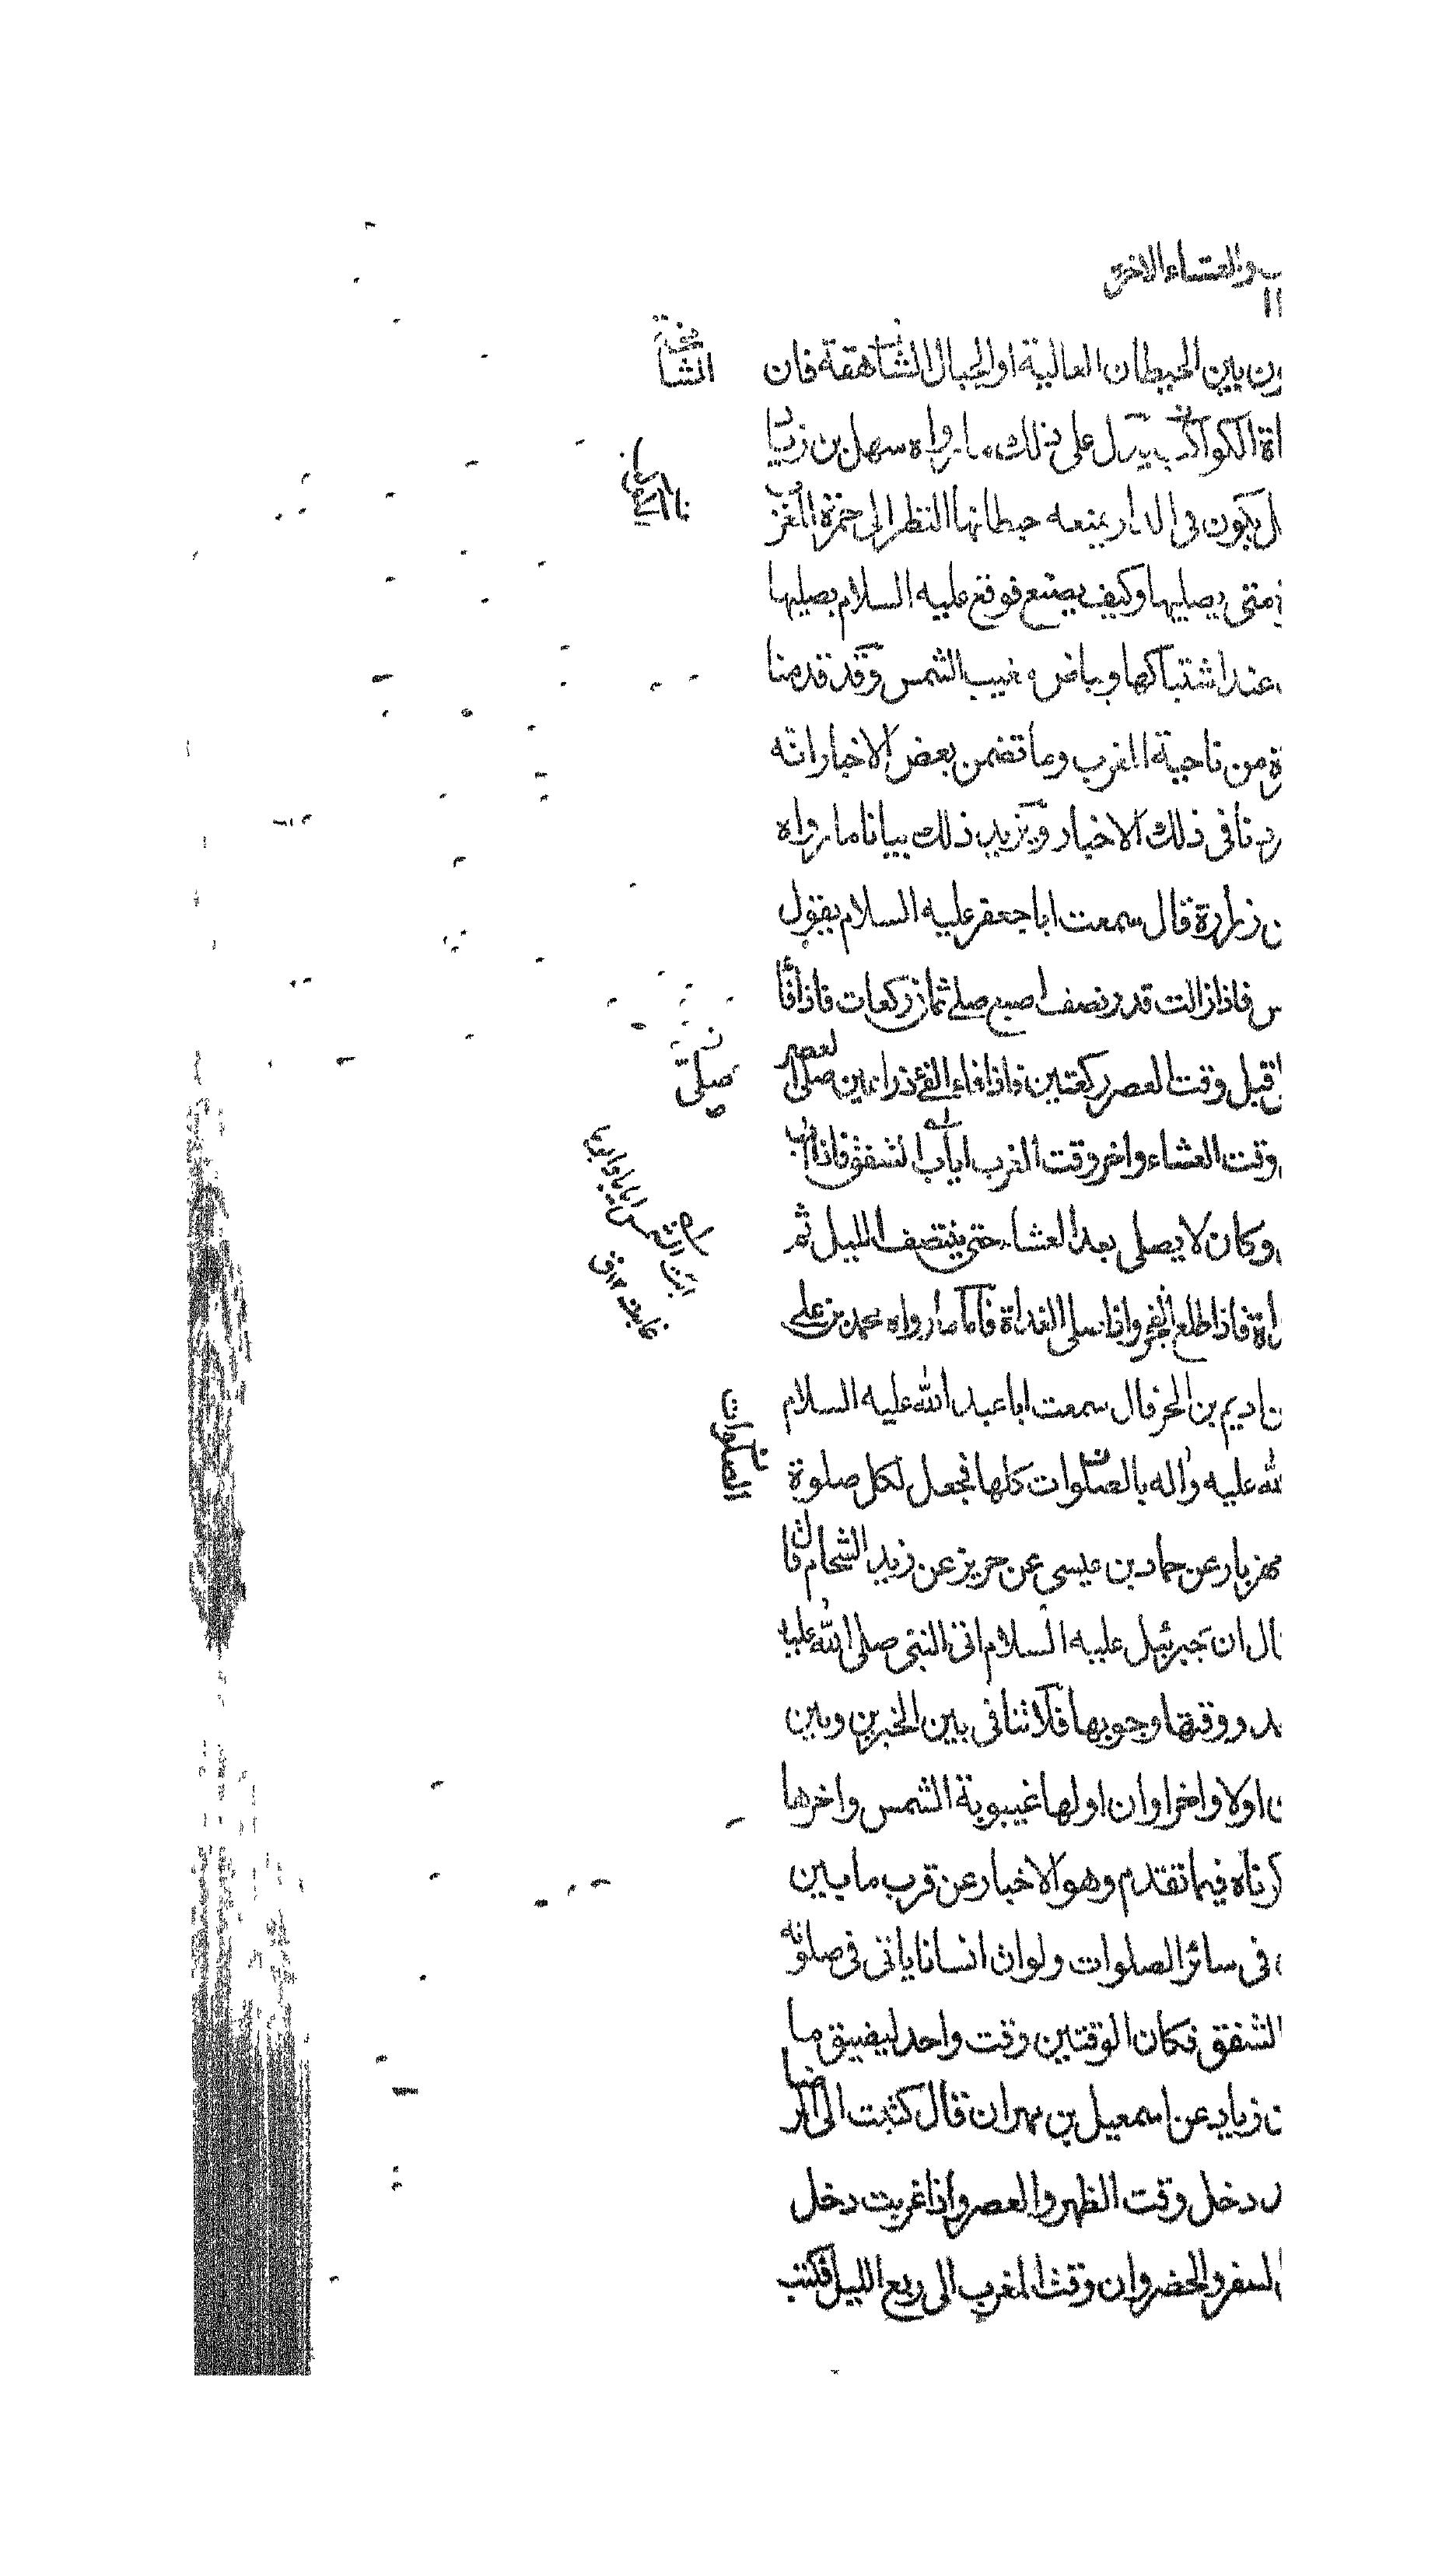 ب والعشاء الاخرة
ون بين الحيطان العالية او الجبال الشاهقة فان
الشامخة
اة الكواكب يدل على ذلك ما رواه سهل بن زياد
ل يكون في الدار يمنعه حيطانها النظر الى حمرة المغرب
متى يصليها وكيف يصنع فوقع عليه السلام يصليها
عند اشتباكها وبياض مغيب الشمس وقد قدمنا
ة من ناحية المغرب وما تضمن بعض الاخبار انه
نا في ذلك الاخبار ويزيد ذلك بيانا ما رواه
ن زرارة قال سمعت ابا جعفر عليه السلام يقول
س فاذا زالت قدر نصف اصبع صلى ثمان ركعات فاذا فا
قبل وقت العصر ركعتين فاذا فاء الفئ ذراعين صلى العصر
صلى
وقت العشاء واخر وقت المغرب اياب الشفق فاذا اب
وكان لا يصلى بعد العشاء حتى ينتصف الليل ثم
اة فاذا طلع الفجر وافا صلى الغداة فاما ما رواه محمد بن علي
ن اديم بن الحر قال سمعت ابا عبد الله عليه السلام
لله عليه واله بالصلوات كلها فجعل لكل صلوة
الصلوات
مهزيار عن حماد بن عيسى عن حريز عن زيد الشحام قال
ال ان جبرئيل عليه السلام اتى النبي صلى الله عليه
د ووقتها وجوبها فلا تنافى بين الخبرين وبين
ن اولا واخرا وان اولها غيبوبة الشمس واخرها
كرناه فيما تقدم وهو الاخبار عن قرب ما بين
فى سائر الصلوات ولوان انسانا ياتى فى صلوته
الشفق فكان الوقتين وقت واحد ليضيق ما
ن زياد عن اسمعيل بن مهران قال كتبت الى الرضا
دخل وقت الظهر والعصر واذا غربت دخل
السفر والحضر وان وقت المغرب الى ربع الليل فكتب